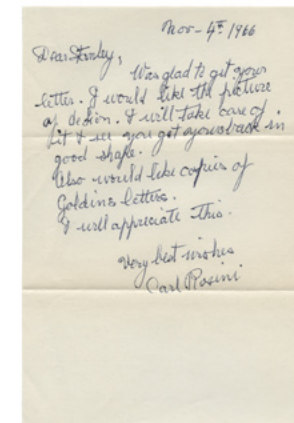 Nov - 4th 1966
Dear Stanley,
Was glad to get your
letter. I would like the picture
of
I will take care of
it & see you get yours back in
good shape.
Also would like copies of
Goldines letters.
I will appreciate this.
Very best wishes
Carl Rosini